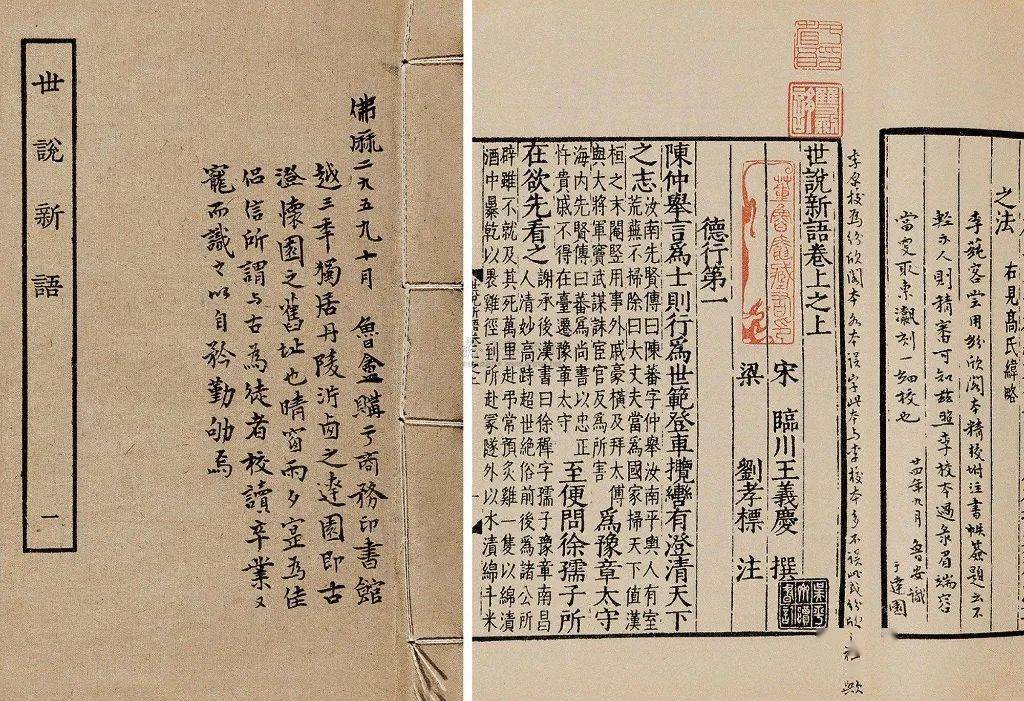 世說新語 一
佛厤二九五九十月 魯盦購亍商務印書館
越三年獨居丹陵沜卤之達園即古
澄懷園之舊址也晴窗雨夕寔為佳
侶信所謂与古為徒者校讀卒業又
寵而識之以自矜勤劬焉
之法 右見高氏緯略
李蓴客堂用紛欣閣本精校附注書帙題云不
輕示人則精審可知茲照李校本過彔眉端容
當更取袁刻一細校也
廿四年九月 魯安識
于達園
李校為紛欣閣本 本誤字此本与李校本多不誤此或紛欣
世說新語卷上之上
宋 臨川王義慶 撰
梁 劉孝標 注
德行第一
陳仲舉言為士則行為世範登車攬轡有澄清天下
之志
汝南先賢傳曰陳蕃字仲舉汝南平輿人有室
荒蕪不掃除曰大丈夫當為國家掃天下值漢
桓之末閹豎用事外戚豪橫及拜太傅
與大將軍竇武謀誅宦官反為所害
為豫章太守
海內先賢傳曰蕃為尚書以忠正
忤貴戚不得在臺遷豫章太守
至便問徐孺子所
在欲先看之
謝承後漢書曰徐穉字孺子豫章南昌
人清妙高跱超世絕俗前後為諸公所
辟雖不就及其死萬里赴弔常預炙雞一隻以綿漬
酒中暴乾以裹雞徑到所赴冢隧外以水漬綿斗米